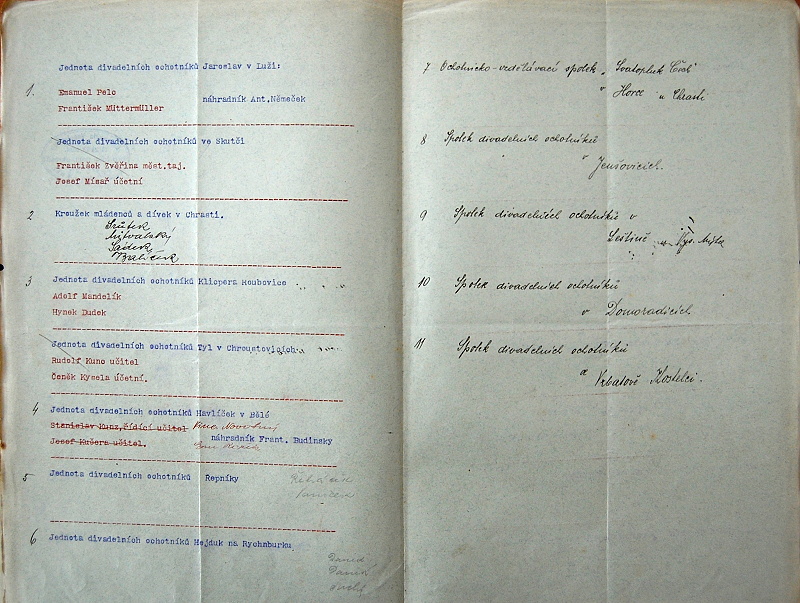 Jednota divadelních ochotníků Jaroslav v Luži:
1.
Emanuel Pelc
František Müttermüller náhradník Ant.Němeček
Jednota divadelních ochotníků ve Skutči
František Zvěřina měst.taj.
Josef Mísař účetní
2 Kroužek mládenců a dívek v Chrasti.
Sádek
3 Jednota divadelních ochotníků Klicpera Houbovice
Adolf Mandelík
Hynek Dudek
Jednota divadelních ochotníků Tyl v Chroustovicích
Rudolf Kunc učitel
Čeněk Kysela účetní.
4 Jednota divadelních ochotníků Havlíček v Bělé
Stanislav Kunz,řídící učitel Novotný
náhradník Frant. Budinsky
Josef Kučera učitel.
5 Jednota divadelních ochotníků Repníky
6 Jednota divadelních ochotníků Hejduk na Rychnburku
7 Ochotnicko-vzdělávací spolek „Svatopluk Čech"
v Horce u Chrasti
8 Spolek divadelních ochotníků
v Jenšovicích.
9 Spolek divadelních ochotníků v
Leštině Vys. Mýta
10 Spolek divadelních ochotníků
v Domoradicích
11 Spolek divadelních ochotníků
Vrbatově Kostelci.